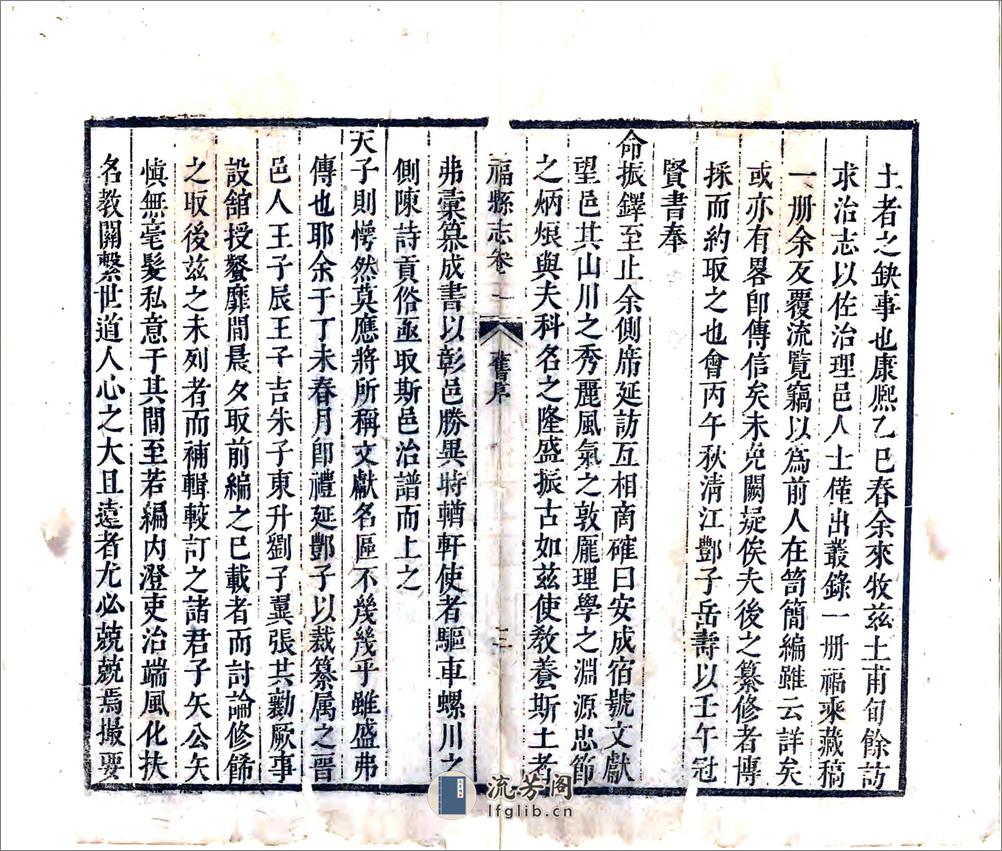 土者之缺事也康熈乙巳春余來牧兹土甫旬餘訪
求治志以佐治理邑人士僅出叢錄一册福乘藏稿
一册余反覆流覽竊以爲前人在笥簡編雖云詳矣
或亦有畧卽傳信矣未免闕疑俟夫後之纂修者博
採而約取之也會丙午秋清江酆子岳壽以壬午冠
賢書奉
命振鐸至止余側席延訪互相商確曰安成宿號文獻
望邑其山川之秀麗風氣之敦龐理學之淵源忠節
之炳烺與夫科名之隆盛振古如兹使教養斯土者
福縣志卷一 舊序 三
弗彙纂成書以彰邑勝異時輶軒使者驅車螺川之
側陳詩貢俗亟取斯邑治譜而上之
天子則愕然莫應將所稱文獻名區不幾幾乎雖盛弗
傳也耶余于丁未春月卽禮延酆子以裁纂属之晉
邑人王子辰王子吉朱子東升劉子翼張其勷厥事
設舘授餐靡間晨夕取前編之已載者而討論修餙
之取後兹之未列者而補輯較訂之諸君子矢公矢
慎無毫髮私意于其間至若編内澄吏治端風化扶
名教關繫世道人心之大且遠者尤必兢兢焉撮要
流芳阁
lfglib.cn